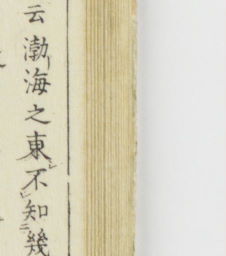 云渤海之東不知幾